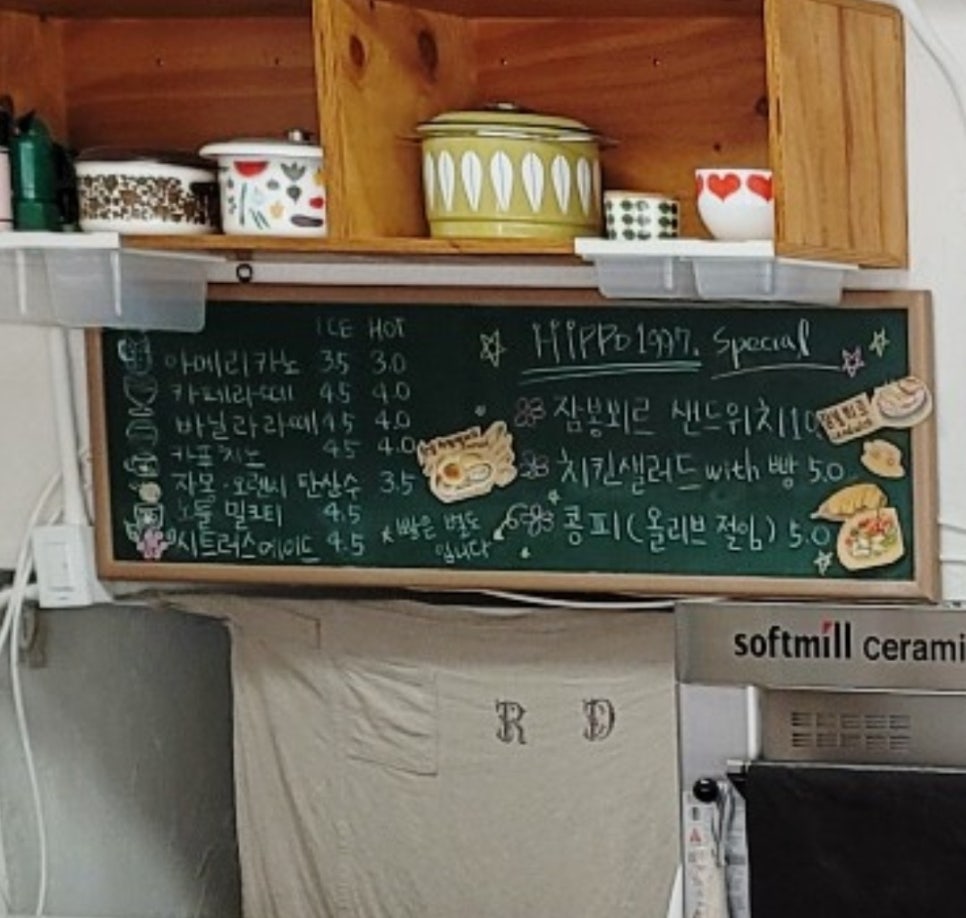 ICE HOT
아메리카노 3.5 3.0
카페라떼 4.5 4.0
바닐라라떼 4.5 4.0
카푸치노 4.5 4.0
자몽·오렌지 탄산수 3.5
밀크티 4.5
시트러스에이드 4.5
빵은 별도
입니다
HIPPO1997. Special
잠봉뵈르 샌드위치
치킨샐러드 with 빵 5.0
콩피(올리브절임) 5.0
softmill cerami
R D